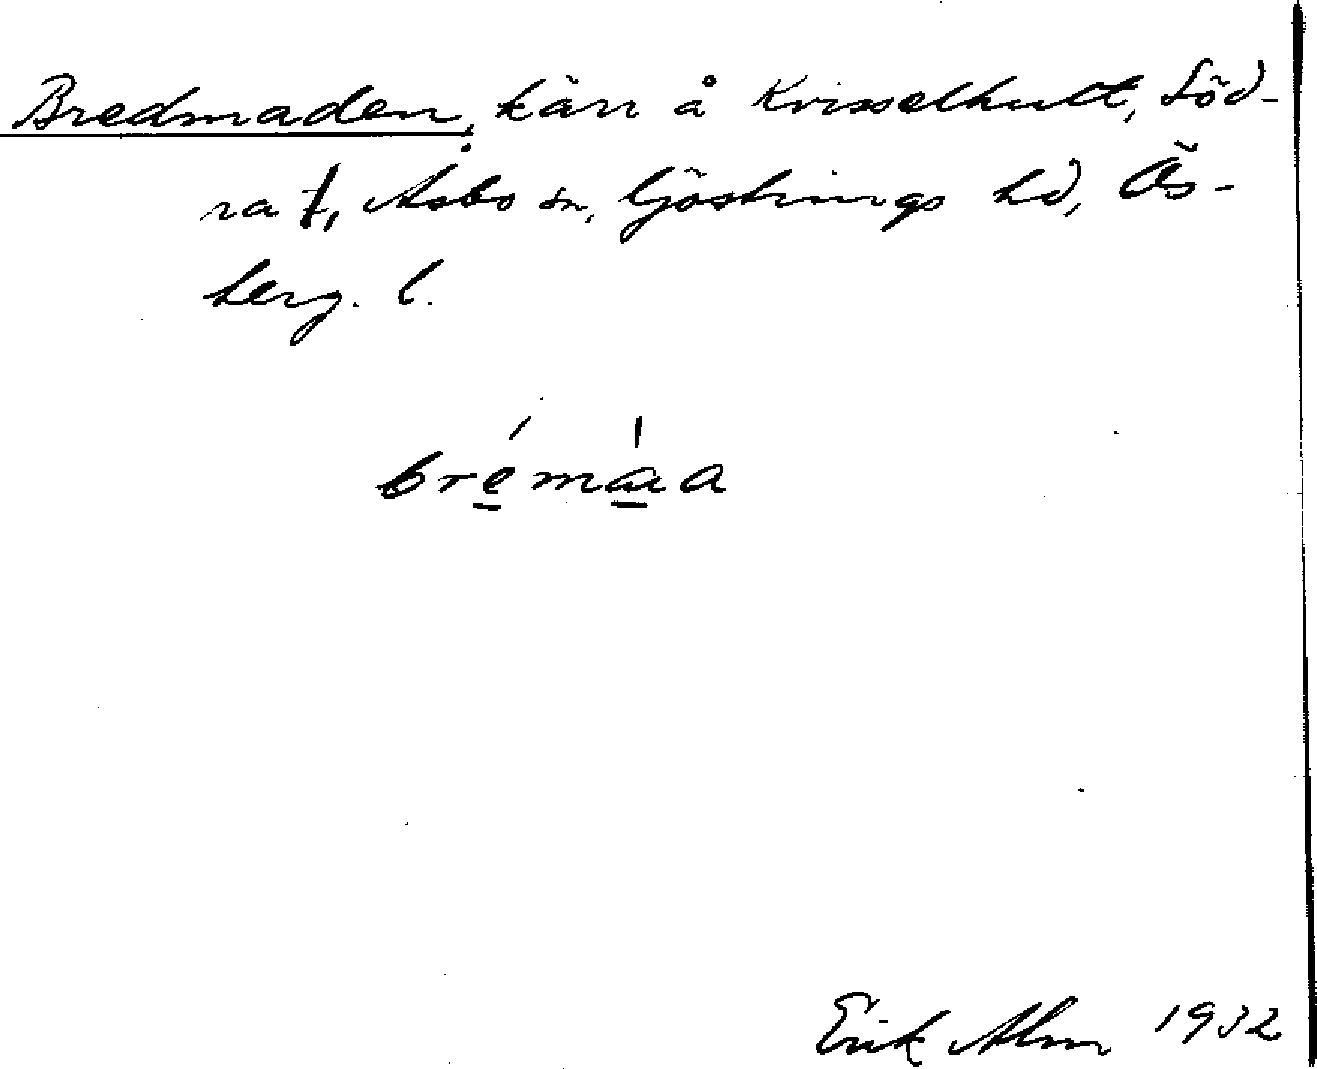 Bredmaden, kärr å Kvisselhult, Söd-
ra f, Åsbo sn, Göstrings hd, Ös-
terg. l.
bre̱ma̱a
Erik Alm 1932